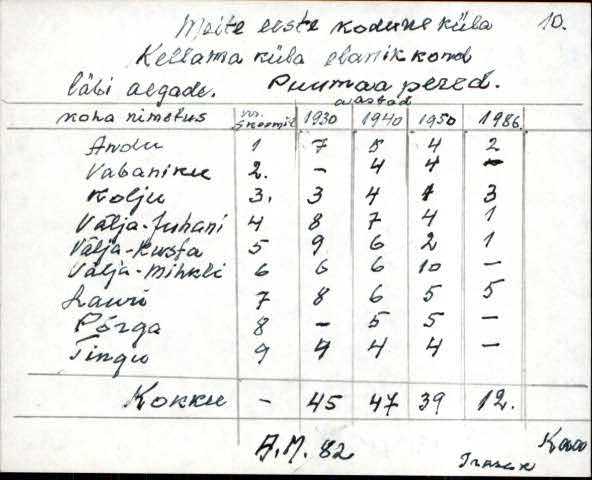 Meite eeste kodune küla 10.
Kellama küla elanikkond
läbi aegade. Puumaa pered.
aastad
koha nimetus nr. skeemil 1930 1940 1950 1986
Andu 1 7 5 4 2
Vabaniku 2. - 4 4 -
Kolju 3. 3 4 1 3
Välja-Juhani 4 8 7 4 1
Välja-Kusta 5 9 6 2 1
Välja-Mihkli 6 6 6 10 -
Lauri 7 8 6 5 5
Põrga 8 - 5 5 -
Tingu 9 4 4 4 -
Kokku - 45 47 39 12.
A.M. 82